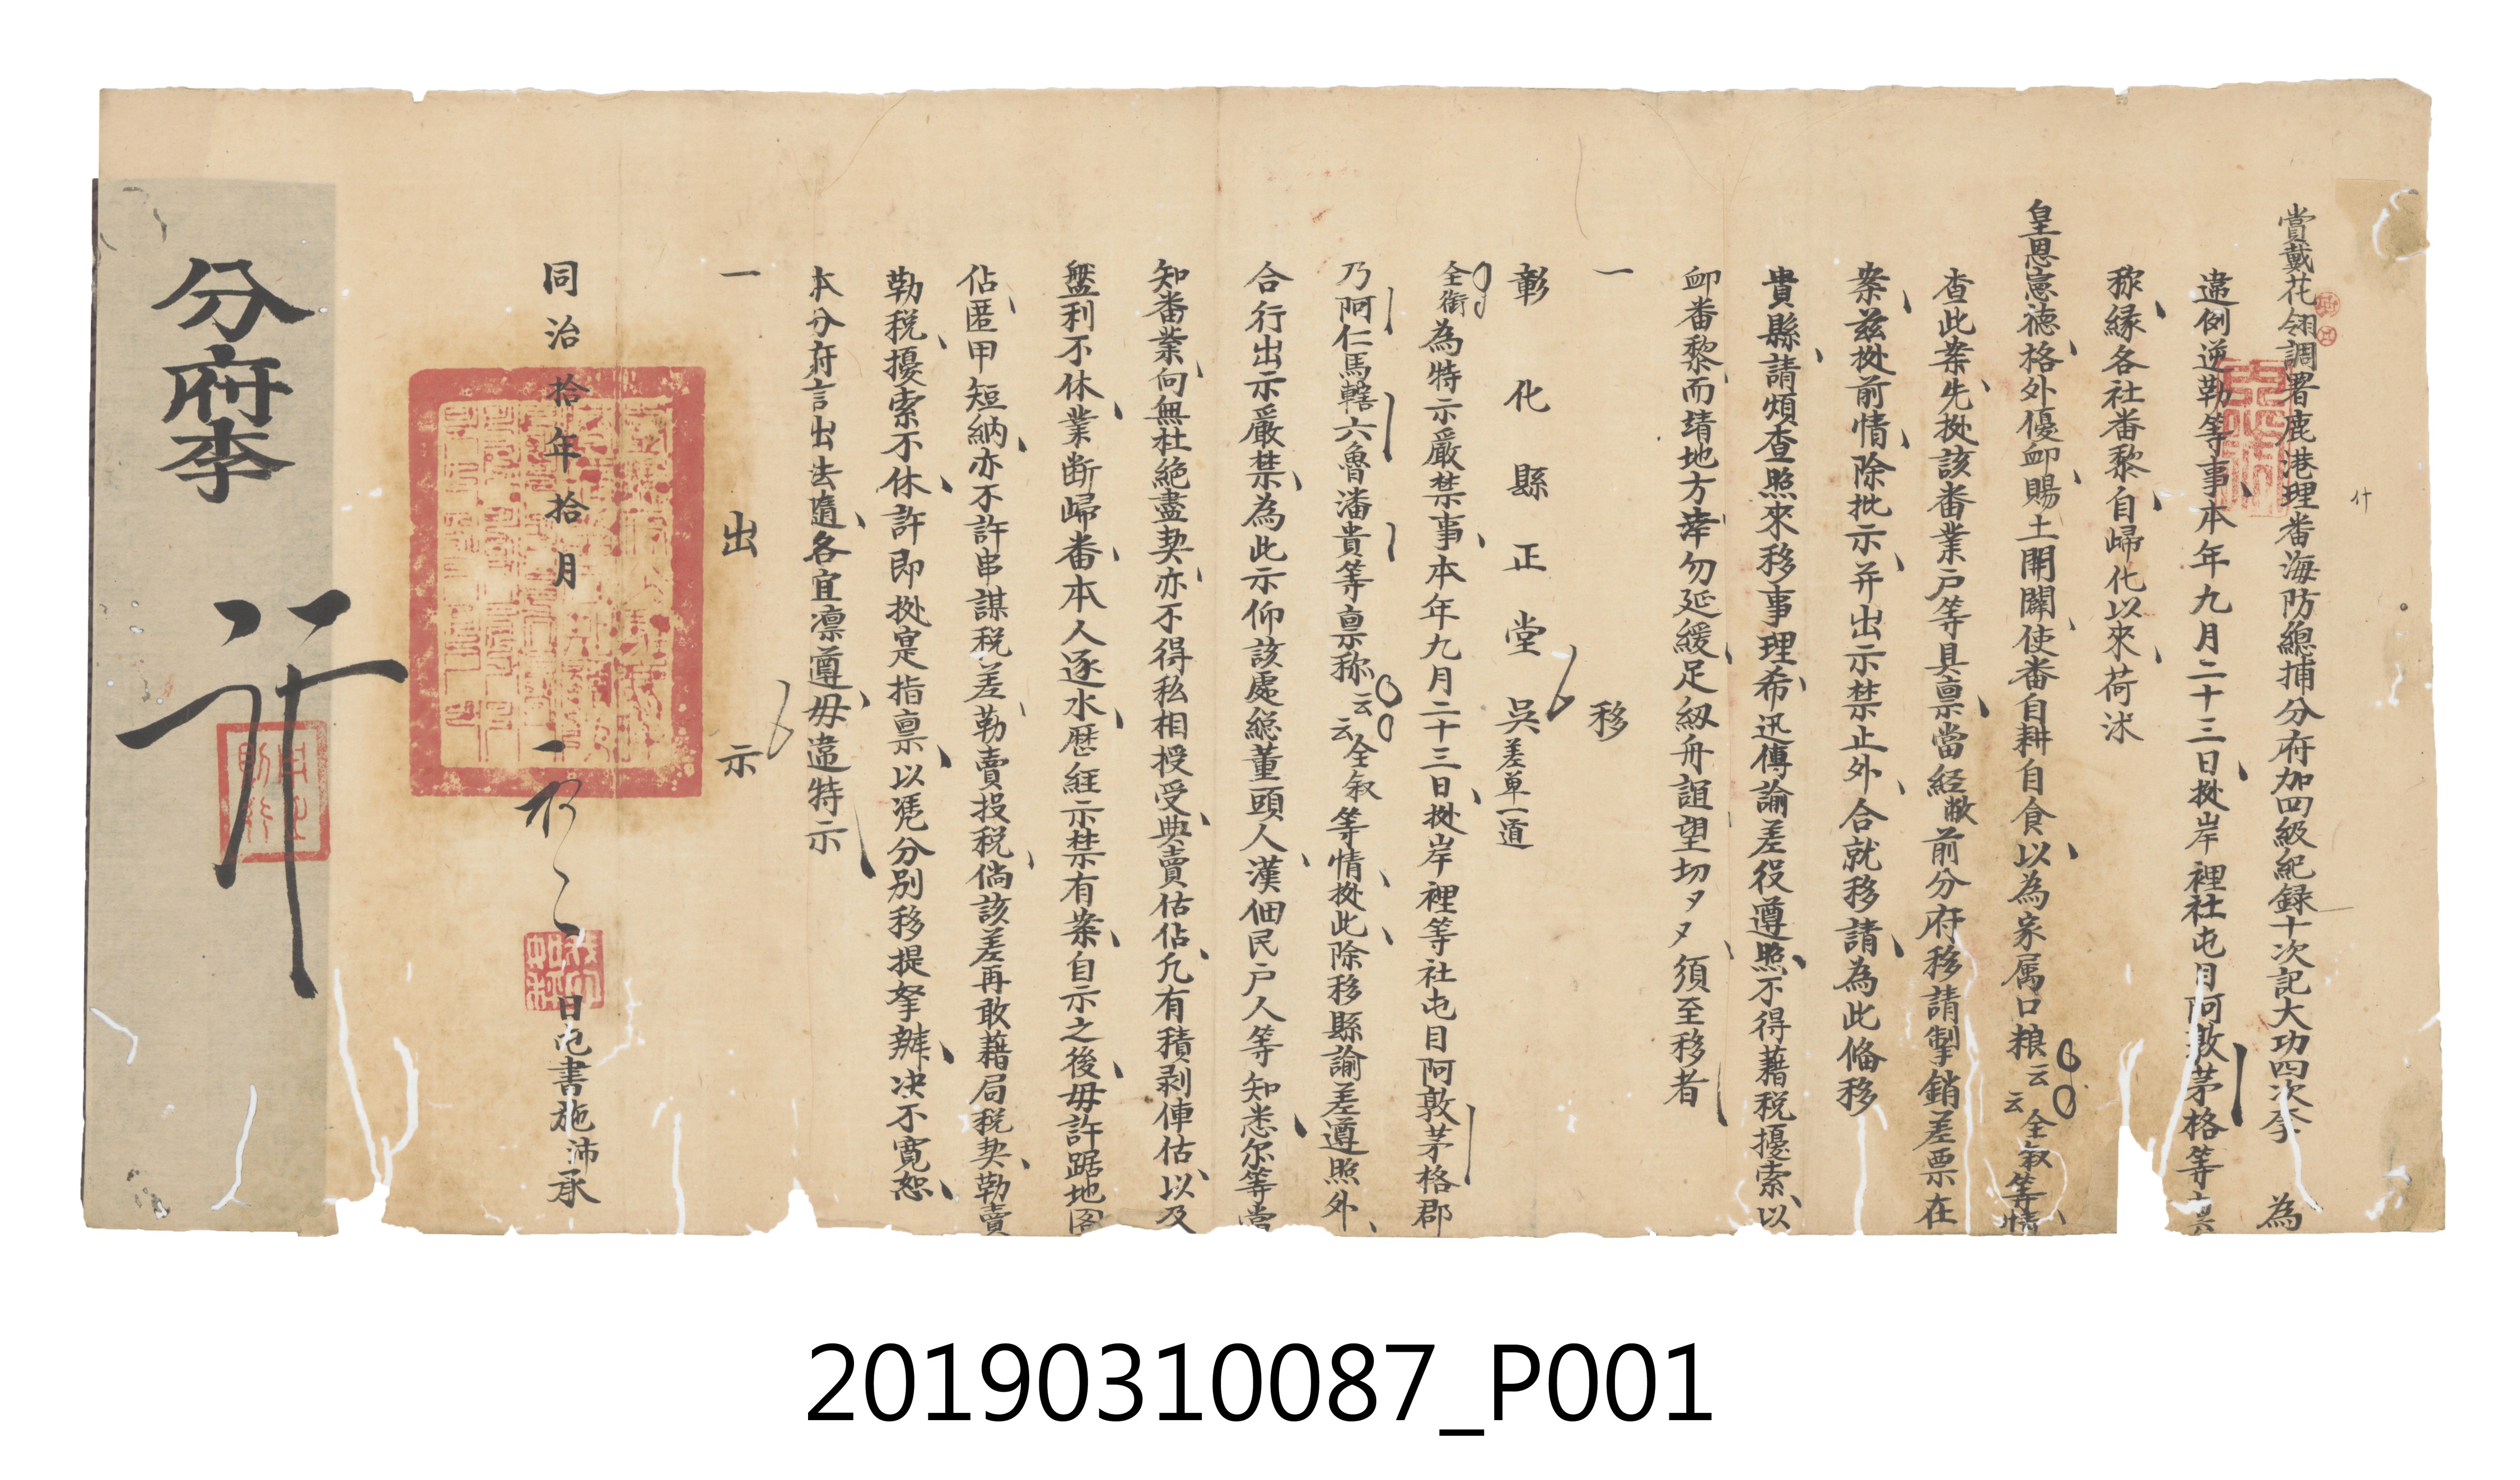 賞戴花翎調署鹿港理番海防總捕分府加四級紀録十次記大功四次李 為
違例逆勒等事本年九月二十三日拠岸裡社屯目阿敦茅格等
称縁各社番黎自歸化以來荷沐
皇恩憲德格外優卹賜土開闢使番自耕自食以為家属口粮云云全叙等情
查此案先拠該番業户等具禀當經敝前分府移請掣銷差票在
案兹拠前情除批示并出示禁止外合就移請為此俻移
貴縣請煩查照來移事理希迅傳諭差役遵照不得藉税擾索以
卹番黎而靖地方幸勿延緩足紉舟誼望切夕夕須至移者
一 移
彰化縣正堂吳 差单一道
全銜為特示嚴禁事本年九月二十三日拠岸裡等社屯目阿敦茅格郡
乃阿仁馬轄六魯潘貴等禀称云云全叙等情拠此除移縣諭差遵照外
合行出示嚴禁為此示仰該處総董頭人漢佃民户人等知悉尔等當
知番業向無杜絶盡契亦不得私相授受典賣估佔凢有積剥俥估以及
盤利不休業断歸番本人逐水歴經示禁有案自示之後毋許踞地
佔匿甲短納亦不許串謀税差勒賣投税倘該差再敢藉局税契勒賣
勒税擾索不休許即拠寔指禀以凭分别移提拏辦决不寛恕
本分府言出法隨各宜凛遵毋違特示
一 出 示
同治拾年拾月 日屯書施沛承
分府李
行
20190310087_P001